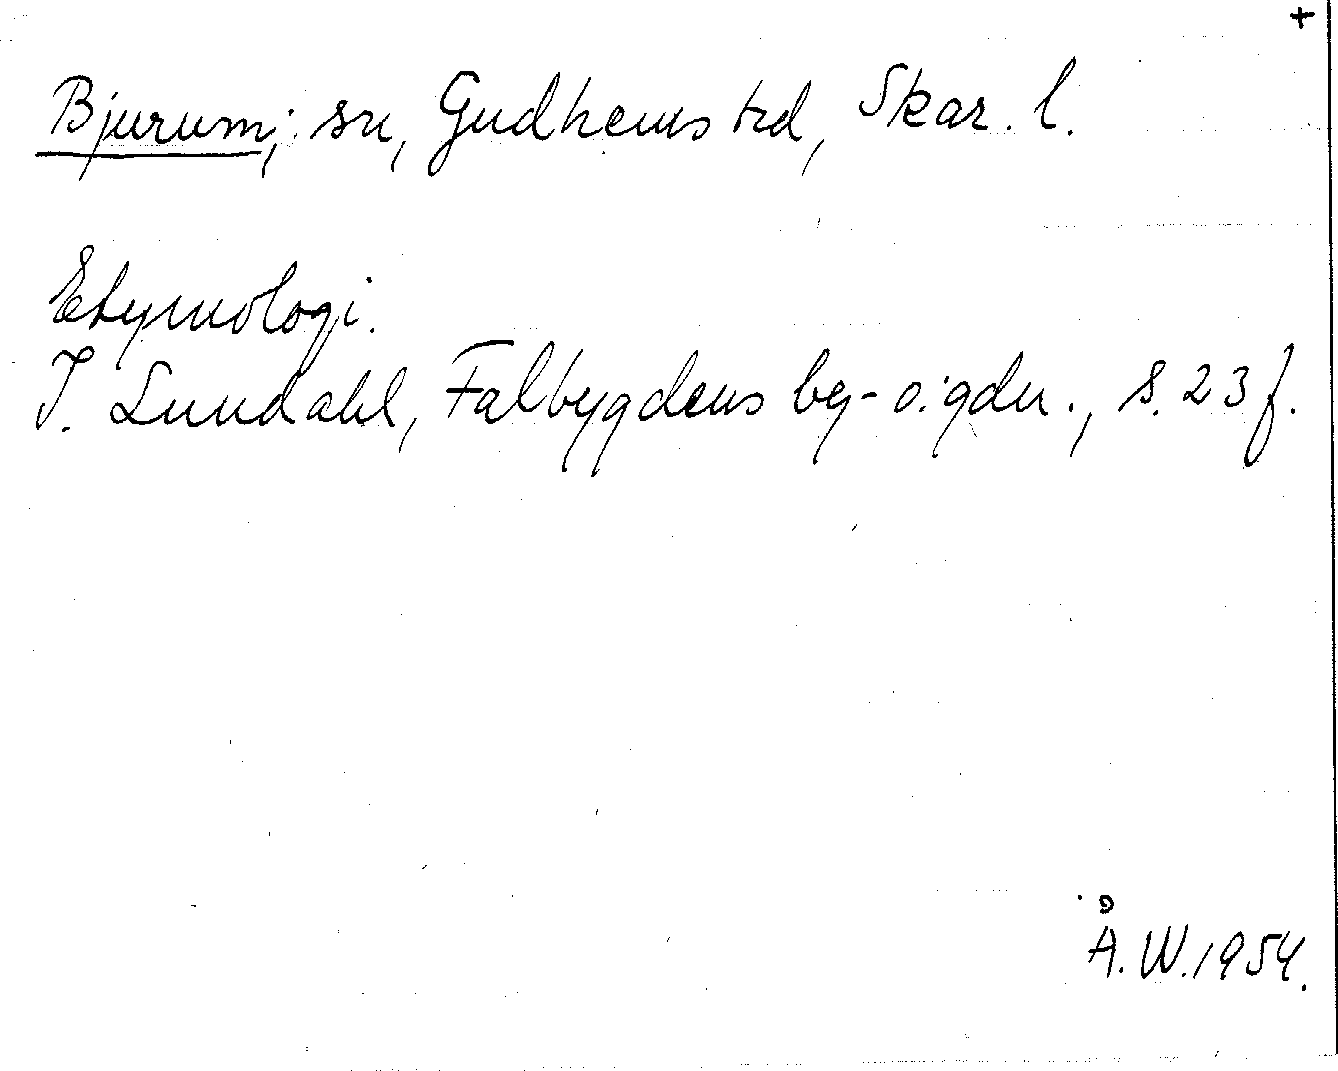 +
Bjurum; sn, Gudhems hd, Skar. l.
Etymologi.
I. Lundahl, Falbygdens by- o. gdn., s. 23 f.
Å. W. 1954.